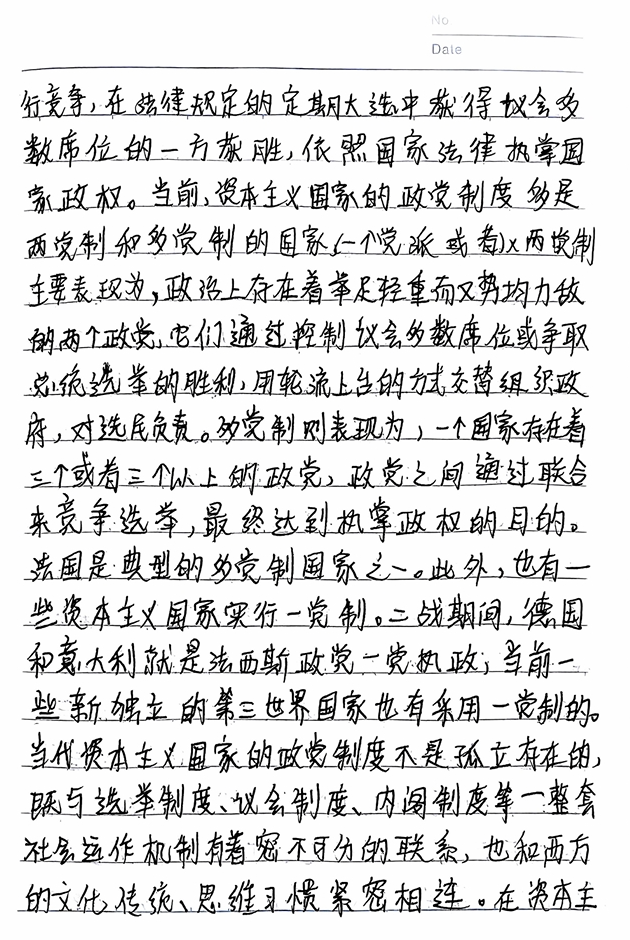 No
Date
行竞争,在法律规定的定期大选中获得议会多
数席位的一方获胜,依照国家法律执掌国
家政权。当前,资本主义国家的政党制度多是
两党制和多党制的国家(一个党派或者)x两党制
主要表现为,政治上存在着举足轻重而又势均力敌
的两个政党,它们通过控制议会多数席位或争取
总统选举的胜利,用轮流上台的方式交替组织政
府,对选民负责。多党制则表现为,一个国家存在着
三个或者三个以上的政党,政党之间通过联合
来竞争选举,最终达到执掌政权的目的。
法国是典型的多党制国家之一。此外,也有一
些资本主义国家实行一党制。二战期间,德国
和意大利就是法西斯政党一党执政,当前一
些新独立的第三世界国家也有采用一党制的。
当代资本主义国家的政党制度不是孤立存在的,
既与选举制度、议会制度、内阁制度等一整套
社会运作机制有着密不可分的联系,也和西方
的文化传统、思维习惯紧密相连。在资本主